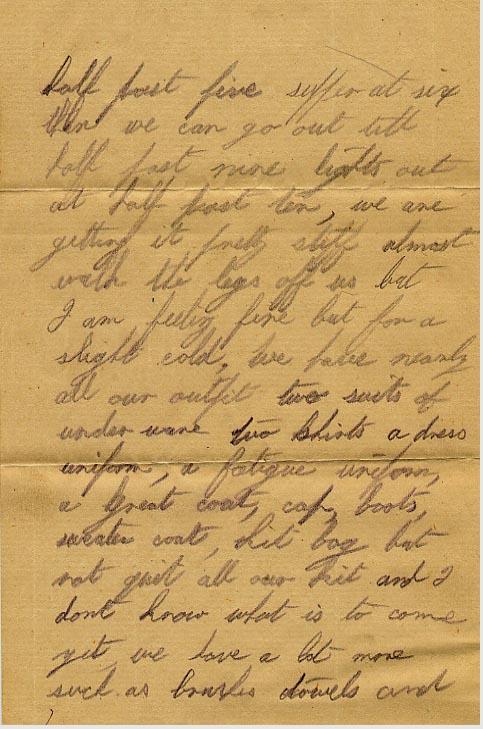 half past five supper at six
then we can go out till
half past nine lights out
at half past ten, we are
getting it pretty stiff almost
walk the legs off us but
I am feeling fine but for a
slight cold, we have nearly
all our outfit two suits of
under ware two shirts a dress
uniform, a fatigue uniform,
a great coat, cap, boots,
sweater coat, kit bag but
not quit all our kit and I
dont know what is to come
yet, we have a lot more
such as brushes towels and